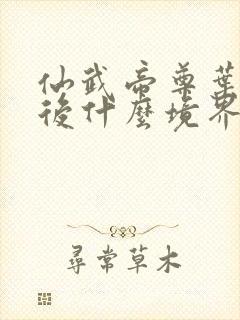 仙武帝尊葉
後什麼境界
尋常草木